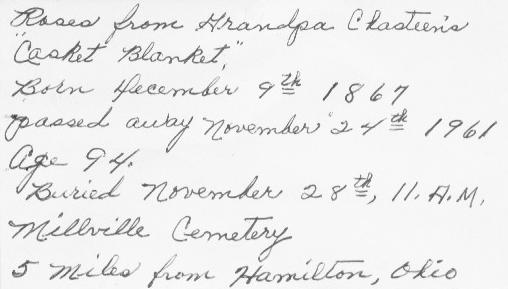 Roses from Grandpa Chasteen's
"Casket Blanket,"
Born December 9th 1867
passed away November 24th 1961
Age 94.
Buried November 28th, 11. A.M.
Millville Cemetery
5 Miles from Hamilton, Ohio